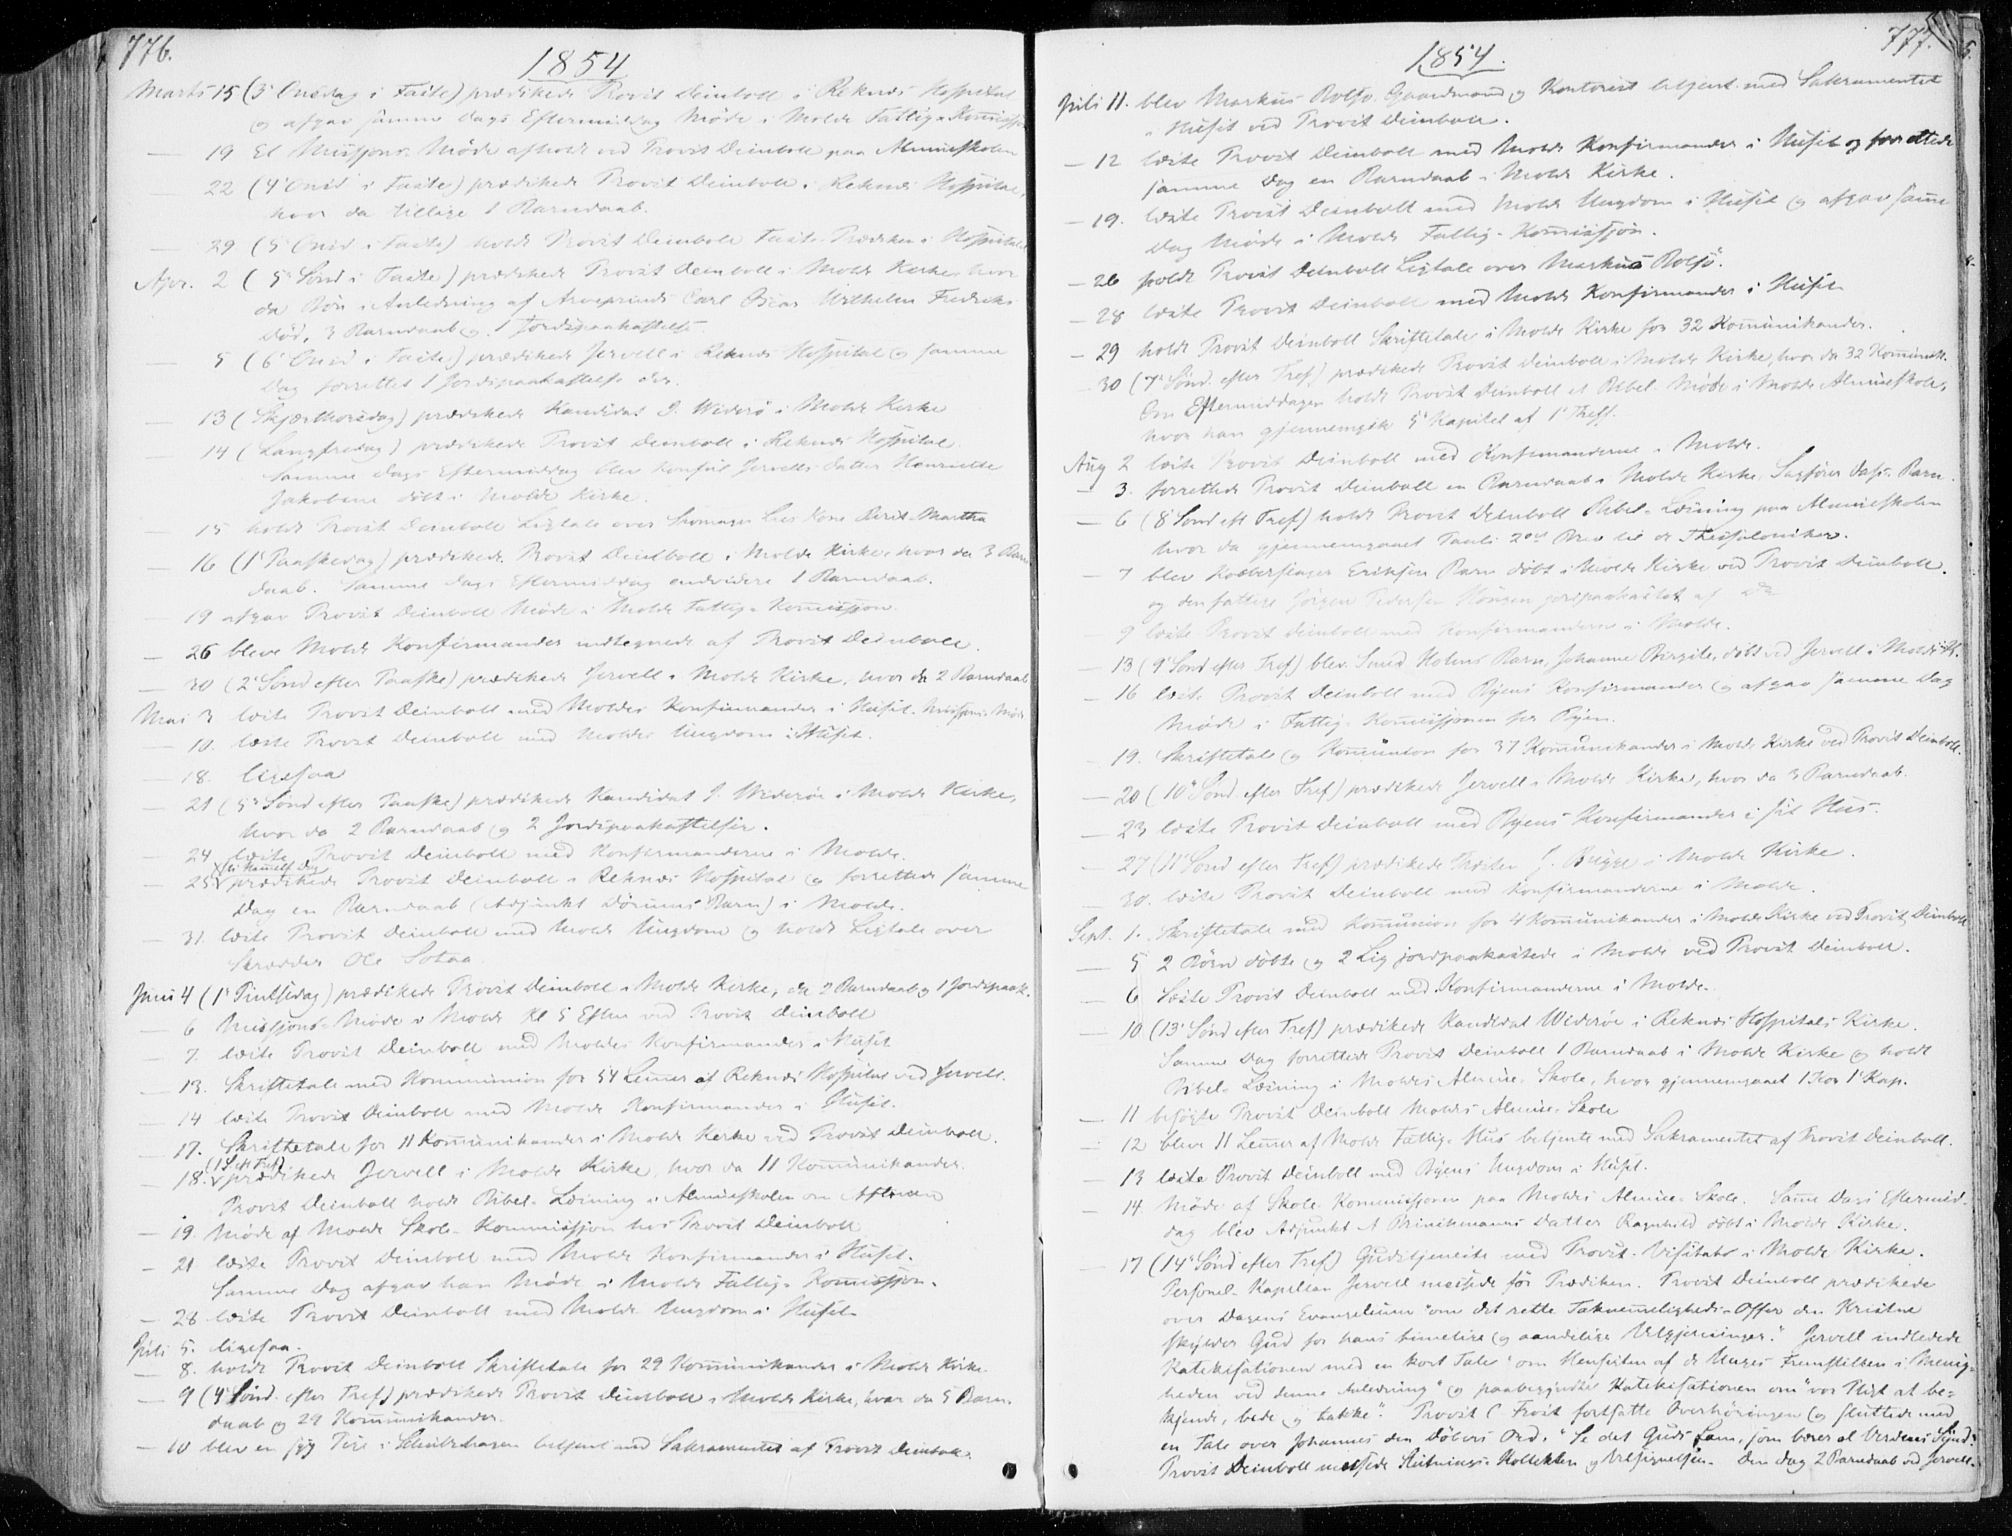 776.
1854
Marts 15 (3' Onsdag i Faste) prædikede Provst Deinboll i Reknæs Hospital
og afgav samme Dags Eftermiddag Møde i Molde Fattig-Kommissjon
— 19 Et Missjons-Møde afholdt ved Provst Deinboll paa Almueskolen
— 22 (4' Onsd i Faste) prædikede Provst Deinboll i Reknæs Hospital,
hvor da tillige 1 Barndaab.
— 29 (5' Onsd i Faste) holdt Provst Deinboll Faste-Prædiken i Hospitalet
Apr. 2 (5' Sønd i Faste) prædikede Provst Deinboll i Molde Kirke, hvor
da Bøn i Anledning af Arveprinds Carl Oscar Wilhelm Fredriks
Død, 3 Barndaab og 1 Jordspaakastelse.
— 5 (6' Onsd i Faste) prædikede Jervell i Reknæs Hospital og samme
Dag forrettet 1 Jordspaakastelse der.
— 13 (Skjærthorsdag) prædikede Kandidat J. Widerö i Molde Kirke
— 14 (Langfredag) prædikede Provst Deinboll i Reknæs Hospital.
Samme Dags Eftermiddag blev Konsul Jervells Datter Henriette
Jakobine döbt i Molde Kirke.
— 15 holdt Provst Deinboll Ligtale over Skomager Lies Kone Berit Martha
— 16 (1' Paaskedag) prædikede Provst Deinboll i Molde Kirke, hvor da 3 Barn
daab. Samme Dags Eftermiddag endvidere 1 Barndaab.
— 19 afgav Provst Deinboll Møde i Molde Fattig-Kommissjon.
— 26 bleve Molde Konfirmander indtegnede af Provst Deinboll.
— 30 (2' Sønd efter Paaske) prædikede Jervell i Molde Kirke, hvor da 2 Barndaab
Mai 3 læste Provst Deinboll med Moldes Konfirmander i Huset. Missjons-Møde
— 10. læste Provst Deinboll med Moldes Ungdom i Huset.
— 18. ligesaa
— 21 (5' Sønd efter Paaske) prædikede Kandidat J. Widerøe i Molde Kirke,
hvor da 2 Barndaab og 2 Jordspaakastelser.
— 24 læste Provst Deinboll med Konfirmanderne i Molde.
Kr Himmelf Dag
— 25 prædikede Provst Deinboll i Reknæs Hospital og forrettede samme
Dag en Barndaab (Adjunkt Dörums Barn) i Molde.
— 31. læste Provst Deinboll med Molde Ungdom og holdt Ligtale over
Skrædder Ole Sotaa.
Juni 4 (1' Pintsedag) prædikede Provst Deinboll i Molde Kirke, da 2 Barndaab og 1 Jordspaak.
— 6 Missjons-Møde i Molde Kl 5 Efter ved Provst Deinboll
— 7. læste Provst Deinboll med Moldes Konfirmander i Huset
— 13. Skriftetale med Kommunion for 54 Lemer af Reknæs Hospital ved Jervell.
— 14 læste Provst Deinboll med Molde Konfirmander i Huset.
— 17. Skriftetale for 11 Kommunikander i Molde Kirke ved Provst Deinboll.
(1 S eft Tref)
— 18. prædikede Jervell i Molde Kirke, hvor da 11 Kommunikander.
Provst Deinboll holdt Bibel-Læsning i Almueskolen om Aftenen
— 19. Møde af Molde Skole-Kommissjon hos Provst Deinboll
— 21 læste Provst Deinboll med Molde Konfirmander i Huset.
Samme Dag afgav han Møde i Molde Fattig-Komissjon.
— 28 læste Provst Deinboll med Molde Ungdom i Huset
Juli 5. ligesaa.
— 8. holdt Provst Deinboll Skriftetale for 29 Kommunikander i Molde Kirke
— 9 (4' Sønd. efter Tref) prædikede Provst Deinboll i Molde Kirke, hvor da 5 Barn-
daab og 29 Kommunikander.
— 10 blev en syg Pige i betjent med Sakramentet af Provst Deinboll.
777.
1854.
Juli 11. blev Markus Bolsø, Gaardmand og Kontorist betjent med Sakramentet
i Huset ved Provst Deinboll.
— 12 læste Provst Deinboll med Molde Konfirmander i Huset og forrettede
samme Dag en Barndaab i Molde Kirke.
— 19. læste Provst Deinboll med Molde Ungdom i Huset og afgav samme
Dag Møde i Molde Fattig-Kommissjon.
— 26 holdt Provst Deinboll Ligtale over Markus Bolsø.
— 28 læste Provst Deinboll med Molde Konfirmander i Huset
— 29 holdt Provst Deinboll Skriftetale i Molde Kirke for 32 Kommunikander.
30 (7' Sønd. efter Tref) prædikede Provst Deinboll i Molde Kirke, hvor da 32 Kommunik.
Om Eftermiddagen holdt Provst Deinboll et Bibel-Møde i Molde Almueskole,
hvor han gjennemgik 5' Kapitel af 1' Thess.
Aug 2 læste Provst Deinboll med Konfirmanderne i Molde.
— 3. forrettede Provst Deinboll en Barndaab i Molde Kirke, Sagfører Barn.
— 6 (8' Sønd eft Tref) holdt Provst Deinboll Bibel-Læsning paa Almueskolen
hvor da gjennemgaaet Pauli 2det Brev til de Thessaloniker.
— 7 blev Kobberslager Eriksens Barn døbt i Molde Kirke ved Provst Deinboll.
og den fattige Jörgen Pedersen jordpaakastet af Do
9 læste Provst Deinboll med Konfirmanderne i Molde.
— 13 (9' Sønd efter Tref) blev Smed Holms Barn, Johanne Birgite, døbt ved Jervell i Molde K.
— 16 læste Provst Deinboll med Byens Konfirmander og afgav samme Dag
Møde i Fattig-Kommissjonen for Byen.
— 19. Skriftetale og Kommunion for 37 Kommunikander i Molde Kirke ved Provst Deinboll.
— 20 (10' Sønd. efter Tref) prædikede Jervell i Molde Kirke, hvor da 3 Barndaab.
— 23 læste Provst Deinboll med Byens Konfirmander i sit Hus.
— 27 (11' Sønd efter Tref) prædikede Præsten J. Brügge i Molde Kirke.
— 30. læste Provst Deinboll med Konfirmanderne i Molde.
Sept. 1. Skriftetale med Kommunion for 4 Kommunikander i Molde Kirke ved Provst Deinboll
— 5 2 Børn døbte og 2 Lig jordpaakastede i Molde ved Provst Deinboll.
— 6 læste Provst Deinboll med Konfirmanderne i Molde.
— 10 (13' Sønd efter Tref) prædikede Kandidat Widerøe i Reknæs Hospitals Kirke.
Samme Dag forrettede Provst Deinboll 1 Barndaab i Molde Kirke og holdt
Bibel-Læsning i Moldes Almue-Skole, hvor gjennemgaaet 1 Kor 1' Kap.
— 11 besøgte Provst Deinboll Moldes Almue-Skole
— 12 bleve 11 Lemer af Molde Fattig-Hus betjente med Sakramentet af Provst Deinboll.
— 13 læste Provst Deinboll med Byens Ungdom i Huset.
— 14 Møde af Skole-Kommissjonen paa Moldes Almue-Skole. Samme Dags Eftermid-
dag blev Adjunkt A Brinchmanns Datter Ragnhild döbt i Molde Kirke.
— 17 (14' Sønd efter Tref) Gudstjeneste med Provst-Visitats i Molde Kirke.
Personel-Kapellan Jervell messede før Prædiken. Provst Deinboll prædikede
over Dagens Evangelium "om det rette Taknemmeligheds-Offer den Kristne
skylder Gud for hans timelige og aandelige Velgjerninger." Jervell indledede
Katekisationen med en kort Tale "om Hensigten af de Unges Fremstillen i Menig-
heden ved denne Anledning" og paabegyndte Katekisationen om "vor Pligt at be-
kjende, bede og takke". Provst C Frost fortsatte Overhöringen og sluttede med
en Tale over Johannes den Døbers Ord: "Se det Guds Lam, som bærer al Verdens Synd."
Provst Deinboll messede Slutnings-Kollekten og Velsignelsen. Den Dag 2 Barndaab ved Jervell.